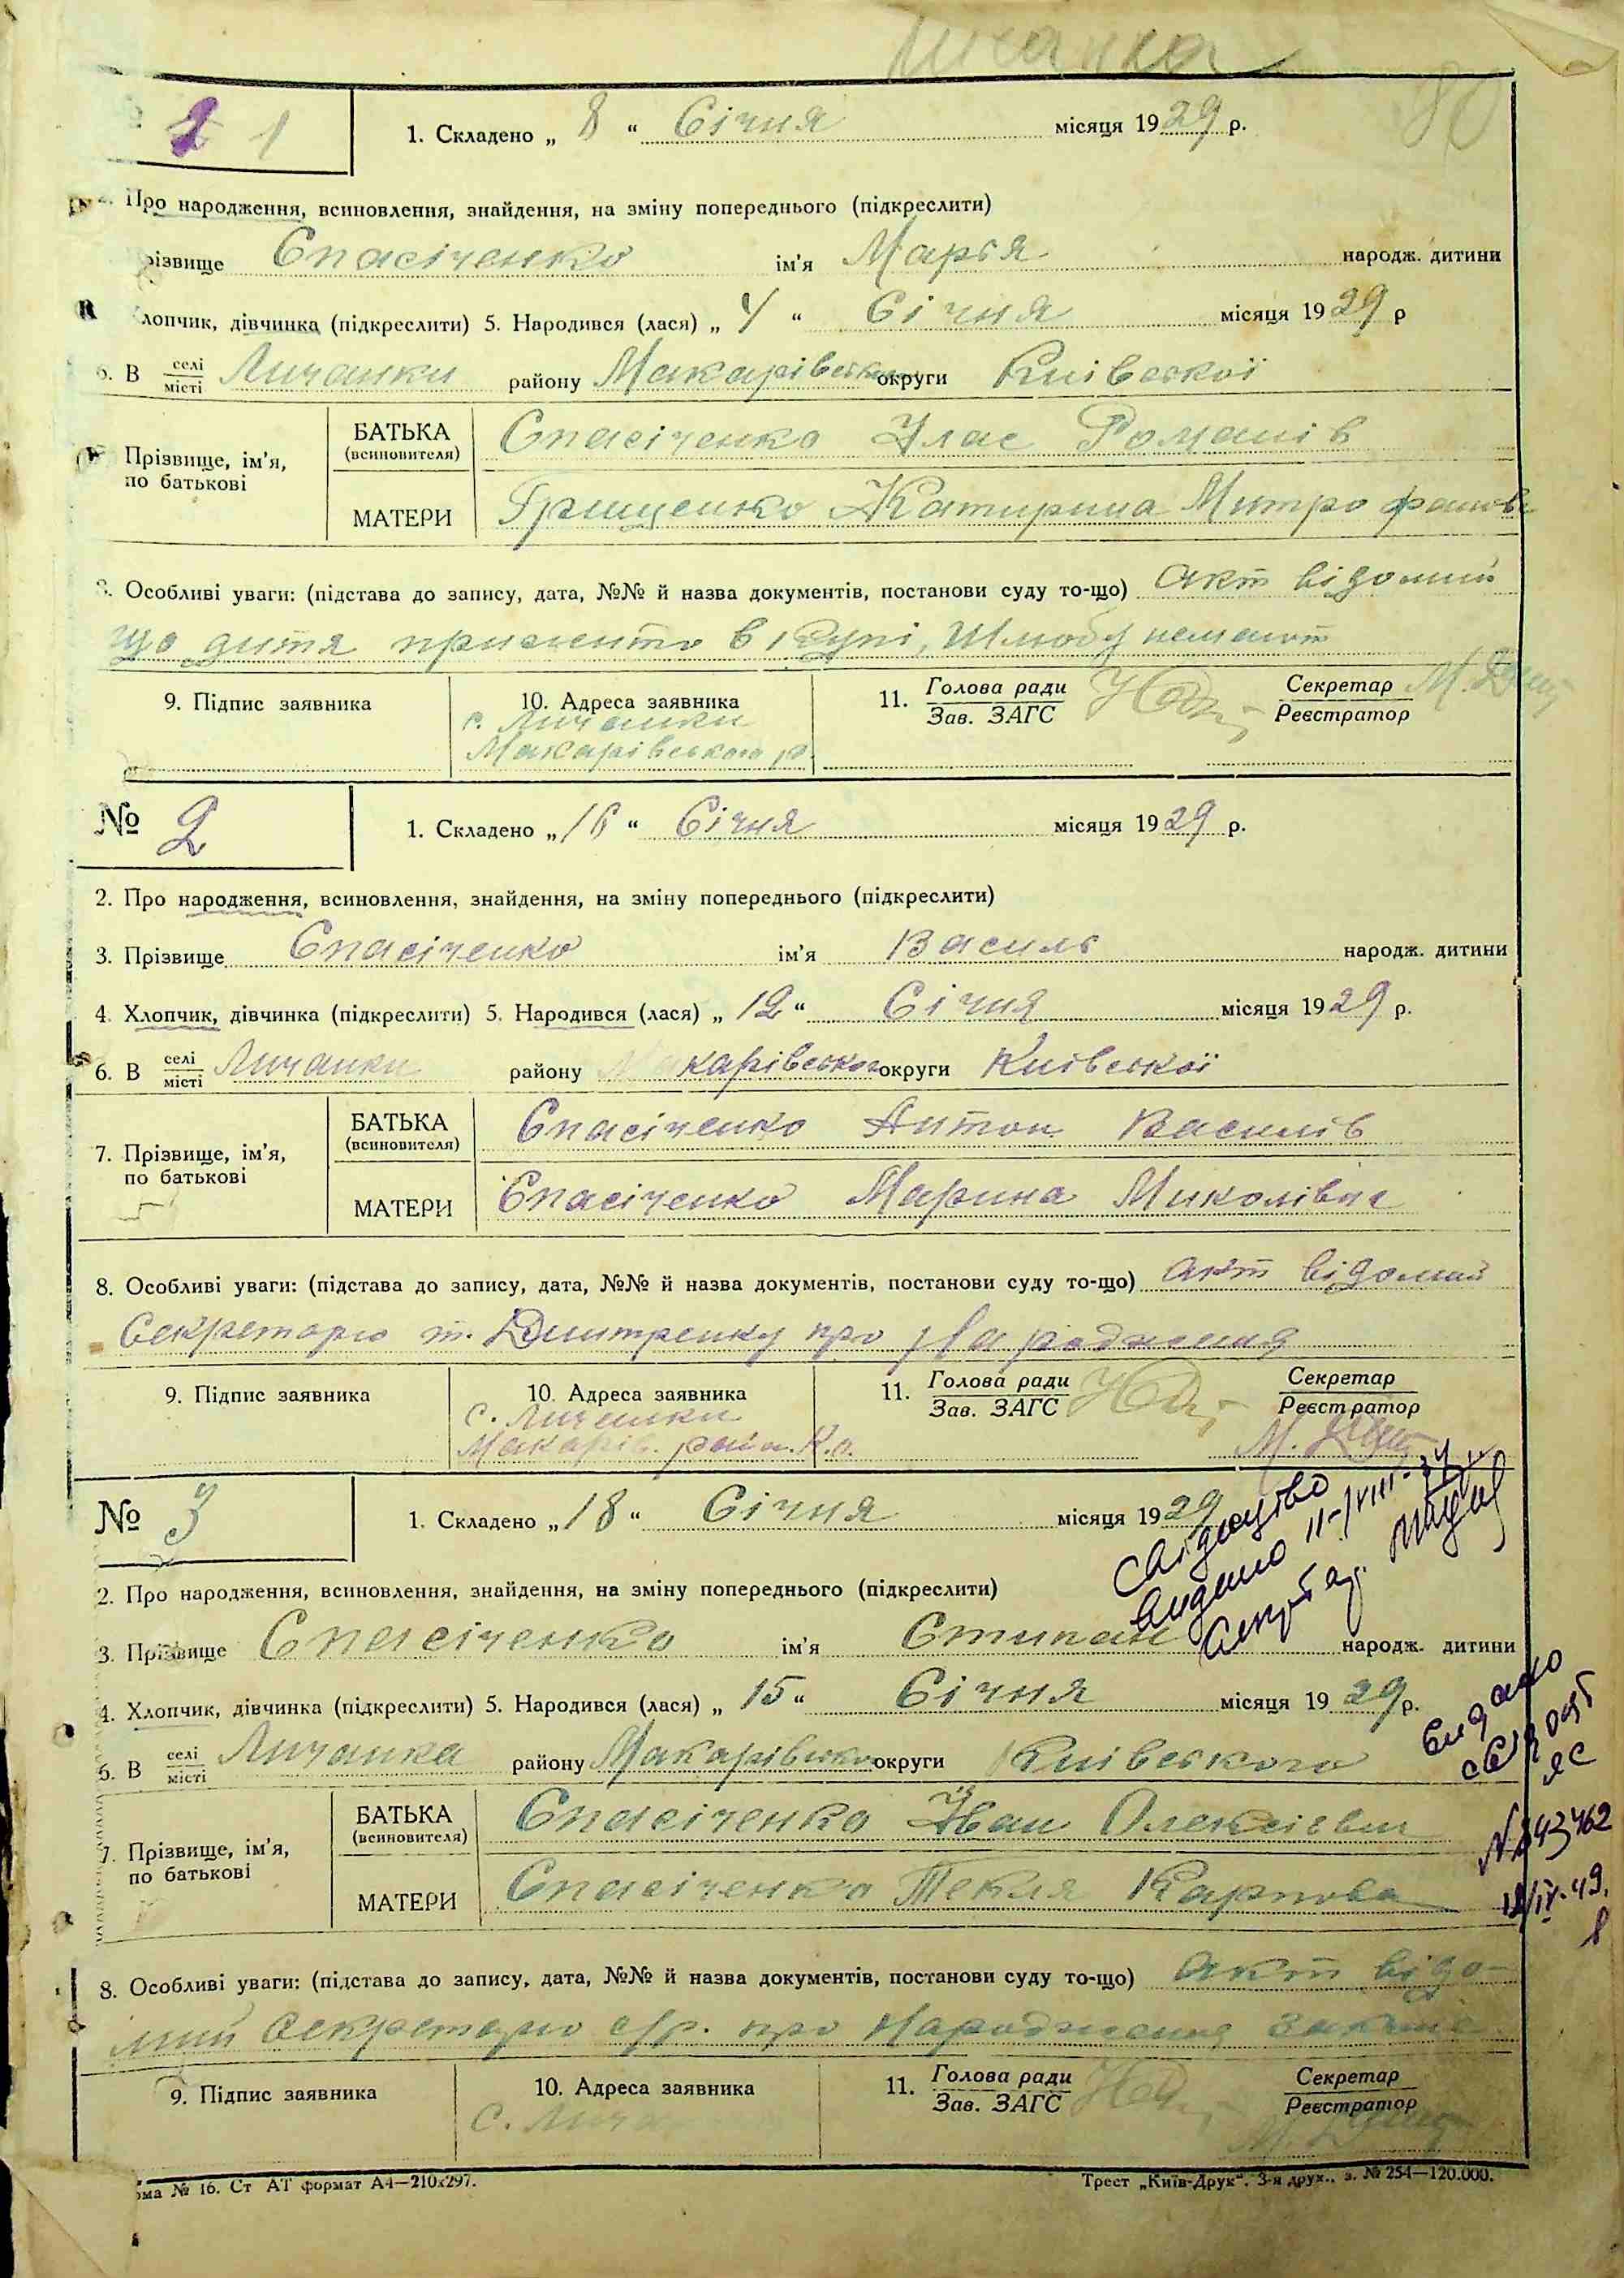 Личанка
80
1
1. Складено „ 8 “ Січня місяця 1929 р.
Про народження, всиновлення, знайдення, на зміну попереднього (підкреслити)
різвище Спасіченко ім'я Марья народж. дитини
лопчик, дівчинка (підкреслити) 5. Народився (лася) „ 4 “ Січня місяця 1929 р
6. В селі/місті Личанки району Макарівського округи Київської
Прізвище, ім'я, по батькові
БАТЬКА (всиновителя) Спасіченко Улас Романів
МАТЕРИ Грищенко Катирина Митрофанов
8. Особливі уваги: (підстава до запису, дата, №№ й назва документів, постанови суду то-що) Акт відомий
що дитя прижито в Шлюбу немають
9. Підпис заявника
10. Адреса заявника
с. Личанки
Макарівського р.
11. Голова ради/Зав. ЗАГС
Секретар/Реєстратор
№ 2
1. Складено „ 16 “ Січня місяця 1929 р.
2. Про народження, всиновлення, знайдення, на зміну попереднього (підкреслити)
3. Прізвище Спасіченко ім'я Василь народж. дитини
4. Хлопчик, дівчинка (підкреслити) 5. Народився (лася) „ 12 “ Січня місяця 1929 р.
6. В селі/місті Личанки району Макарівського округи Київської
7. Прізвище, ім'я, по батькові
БАТЬКА (всиновителя) Спасіченко Антон Василів
МАТЕРИ Спасіченко Марина Миколівна
8. Особливі уваги: (підстава до запису, дата, №№ й назва документів, постанови суду то-що) Акт відомий
Секретарю т. Дмитренку про народження
9. Підпис заявника
10. Адреса заявника
с. Личанки
Макарів. район. К.о.
11. Голова ради/Зав. ЗАГС
Секретар/Реєстратор
№ 3
1. Складено „ 18 “ Січня місяця 1929
Свідоцтво
видано 11-/VIII-34
2. Про народження, всиновлення, знайдення, на зміну попереднього (підкреслити)
3. Прізвище Спасіченко ім'я Стипан народж. дитини
4. Хлопчик, дівчинка (підкреслити) 5. Народився (лася) „ 15 “ Січня місяця 1929 р.
6. В селі/місті Личанка району Макарівського округи Київського
видано
7. Прізвище, ім'я, по батькові
БАТЬКА (всиновителя) Спасіченко Іван Олексієвич
МАТЕРИ Спасіченко Текля Карпова
12/IV-49.
8. Особливі уваги: (підстава до запису, дата, №№ й назва документів, постанови суду то-що) Акт відо-
мий Секретарю с/р. про народження
9. Підпис заявника
10. Адреса заявника
11. Голова ради/Зав. ЗАГС
Секретар/Реєстратор
рма № 16. Ст АТ формат А4—210х297.
Трест „Київ-Друк“. 3-я друк., з. № 254—120.000.